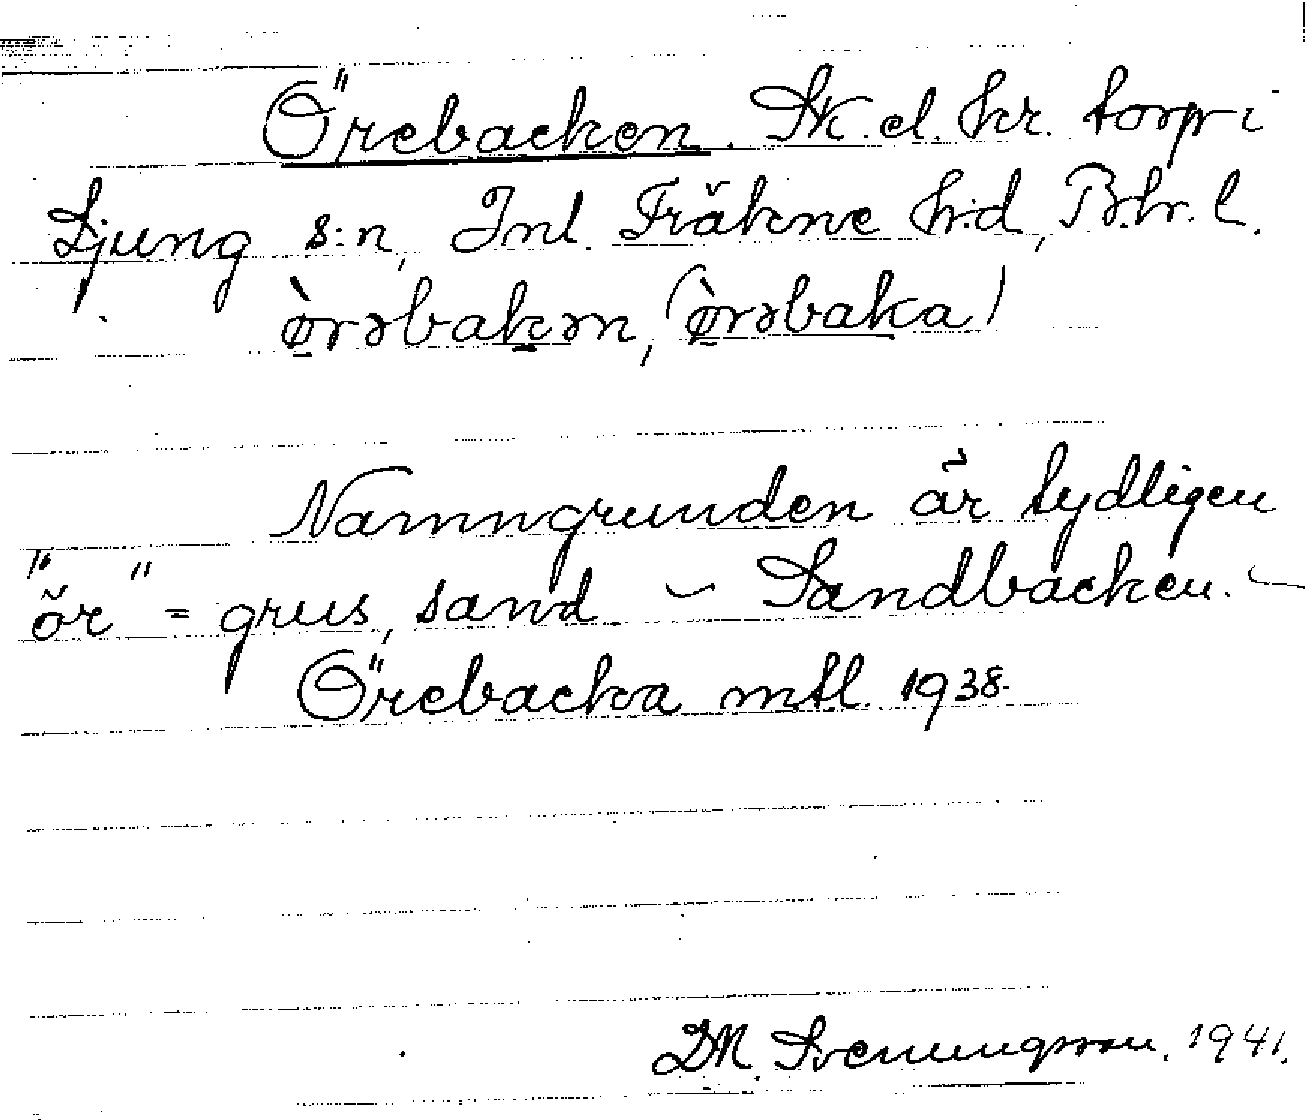 Örebacken. Sk. el. hr. torp i
Ljung s:n, Inl. Fräkne h:d, Bhr. l.
ø̀rəbakən, (ø̀rəbaka)
Namngrunden är tydligen
"ör" = grus, sand – Sandbacken. –
Örebacka mtl. 1938.
DM. Svenungsson. 1941.